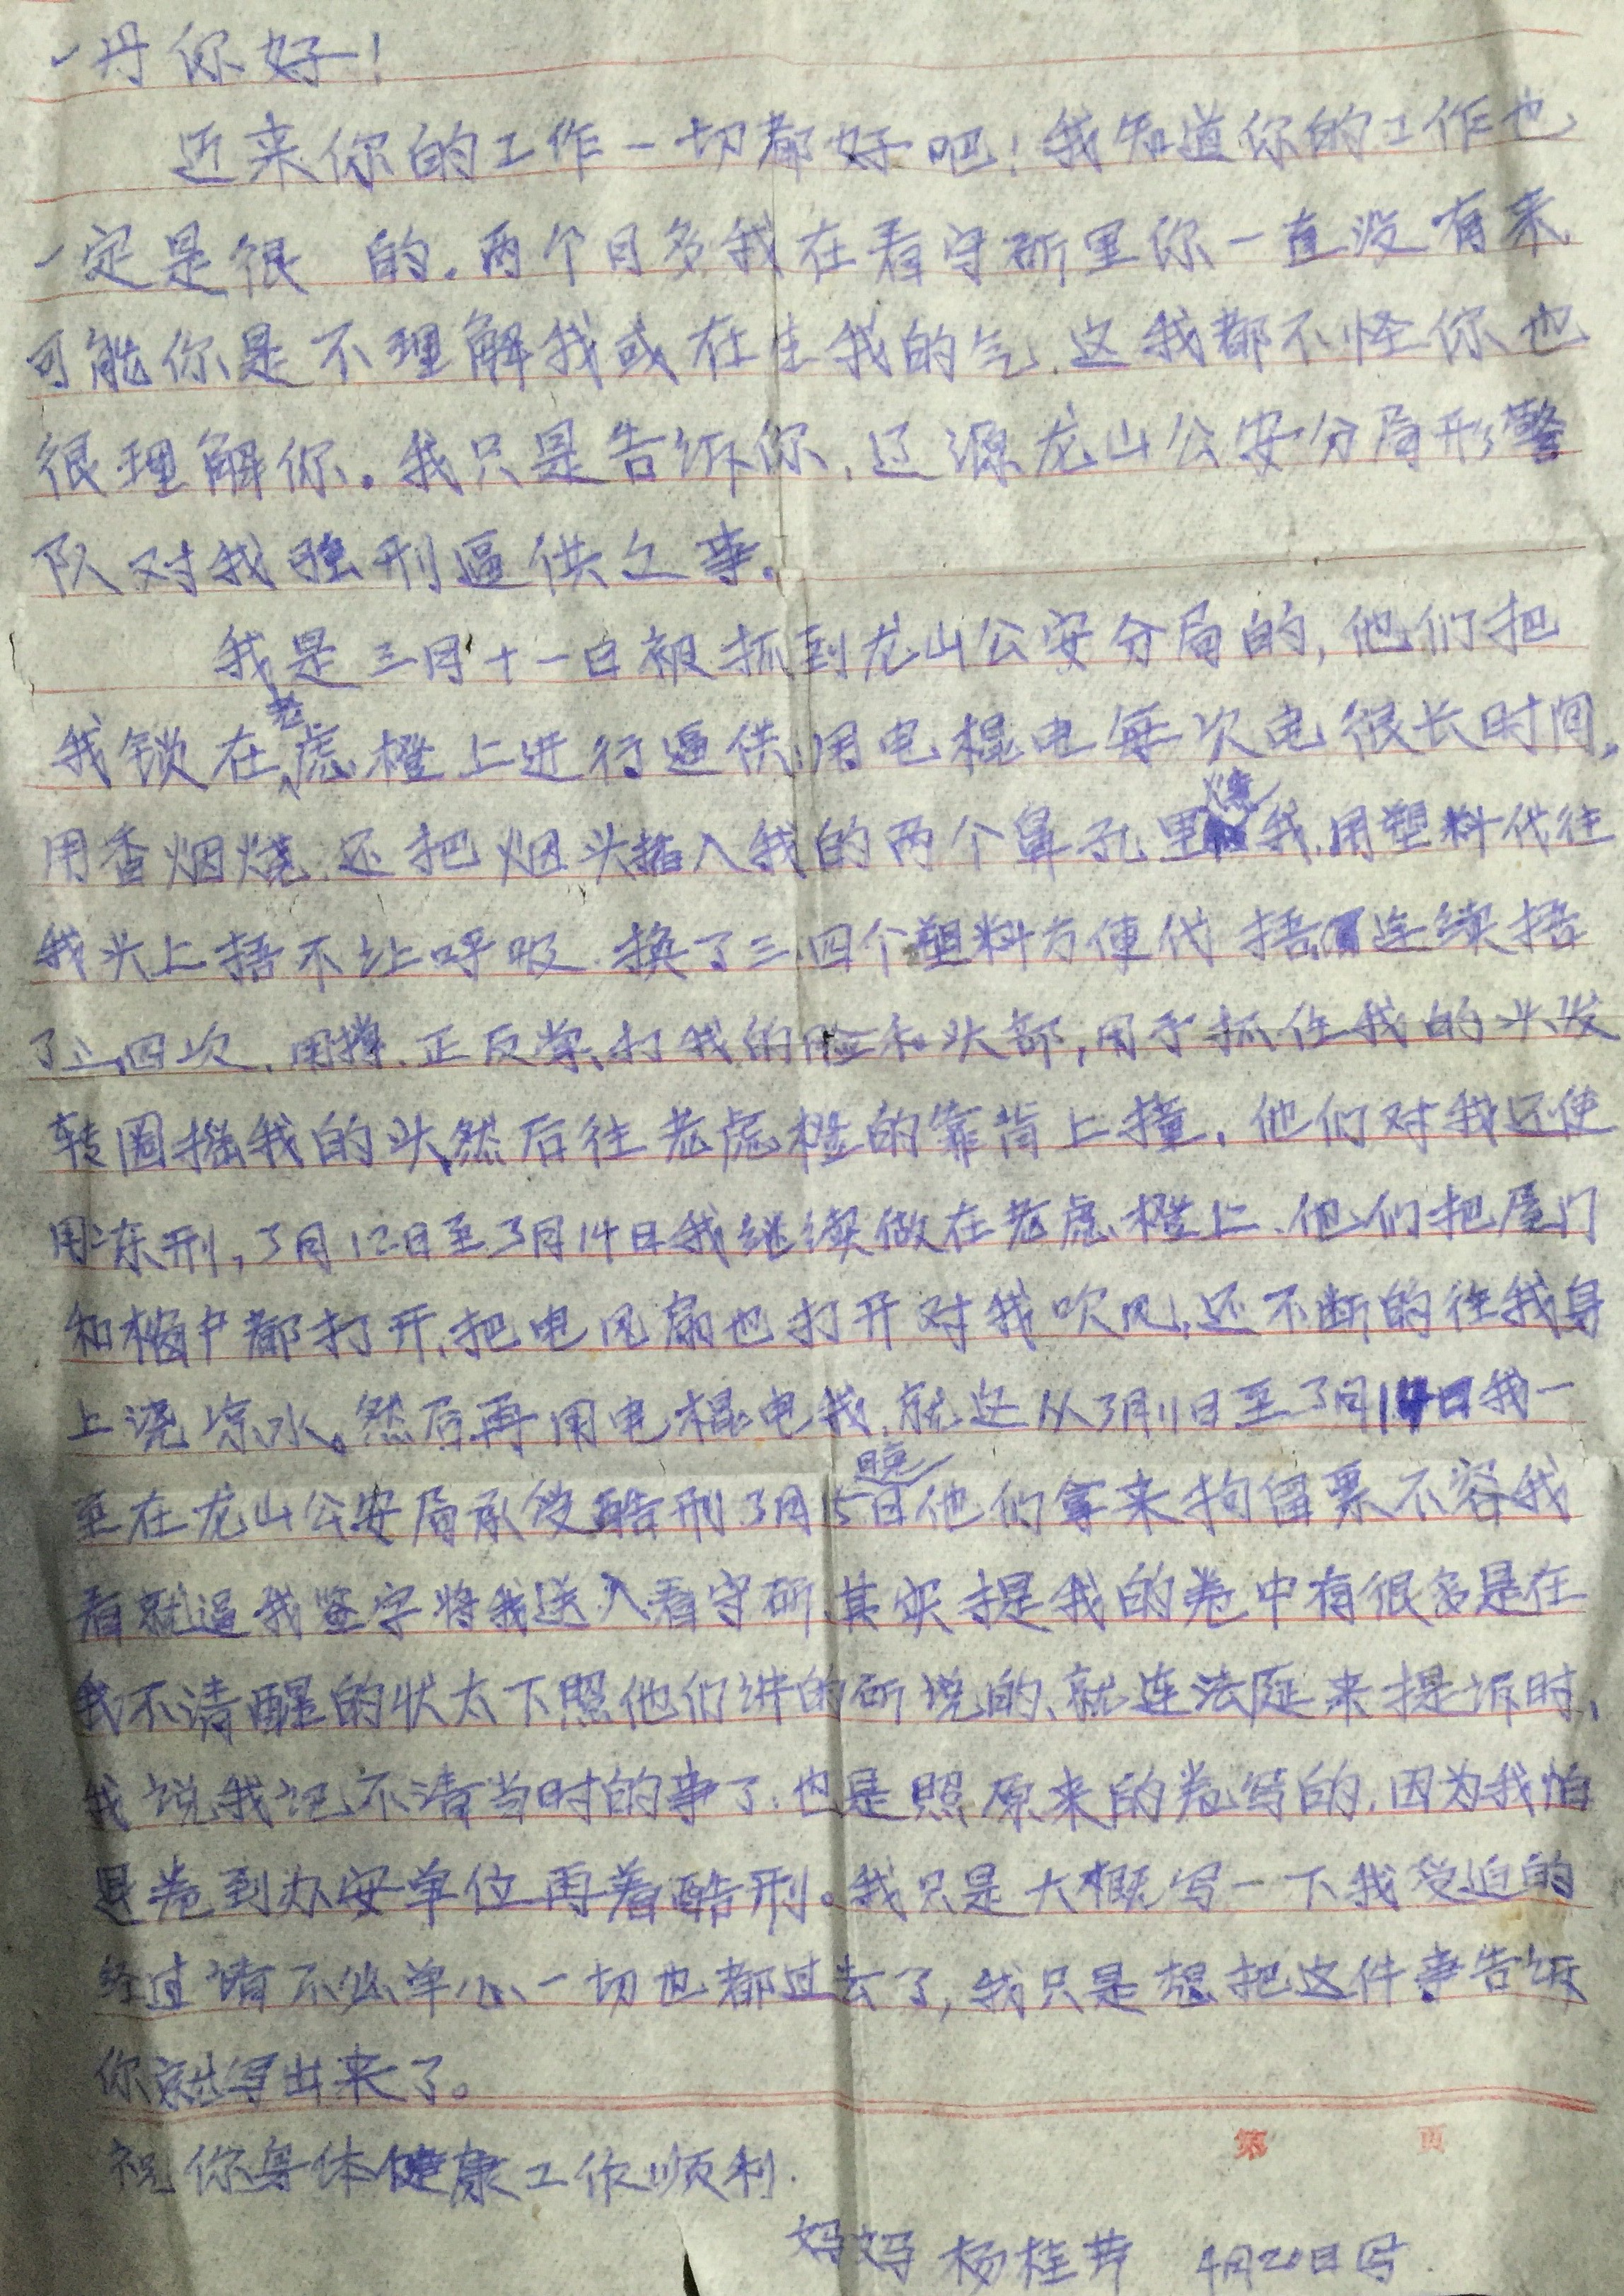 一丹你好!
近来你的工作一切都好吧!我知道你的工作也
一定是很 的.两个月多我在看守所里你一直没有来
可能你是不理解我或在生我的气.这我都不怪你也
很理解你。我只是告诉你,辽源龙山公安分局形警
队对我 刑逼供之事.
我是三月十一日被抓到龙山公安分局的,他们把
我锁在老虎橙上进行逼供.用电棍电每次电很长时间,
用香烟烧.还把烟头插入我的两个鼻孔里 我.用塑料代往
我头上捂不让呼吸.换了三.四个塑料方便代捂了连续捂
了三四次.用撑.正反掌打我的脸和头部,用手抓住我的头发
转圈摇我的头然后往老虎橙的靠背上撞.他们对我还使
用冻刑,3月12日至3月14日我继续做在老虎橙上.他们把屋门
和 户都打开.把电风扇也打开对我吹风,还不断的往我身
上浇凉水。然后再用电棍电我.就这从3月11日至3月14日我一
至在龙山公安局承受酷刑.3月15日晚他们拿来拘留票不容我
看就逼我签字将我送入看守所.其实提我的卷中有很多是在
我不清醒的状太下照他们讲的所说的、就连法庭来提诉时,
我说我记不清当时的事了.也是照原来的卷写的.因为我怕
退卷到办安单位再着酷刑。我只是大概写一下我受迫的
经过请不必单心.一切也都过去了,我只是想把这件事告诉
你就 出来了。
祝你身体健康工作顺利.
第 页
妈妈 杨桂 4月20日写.